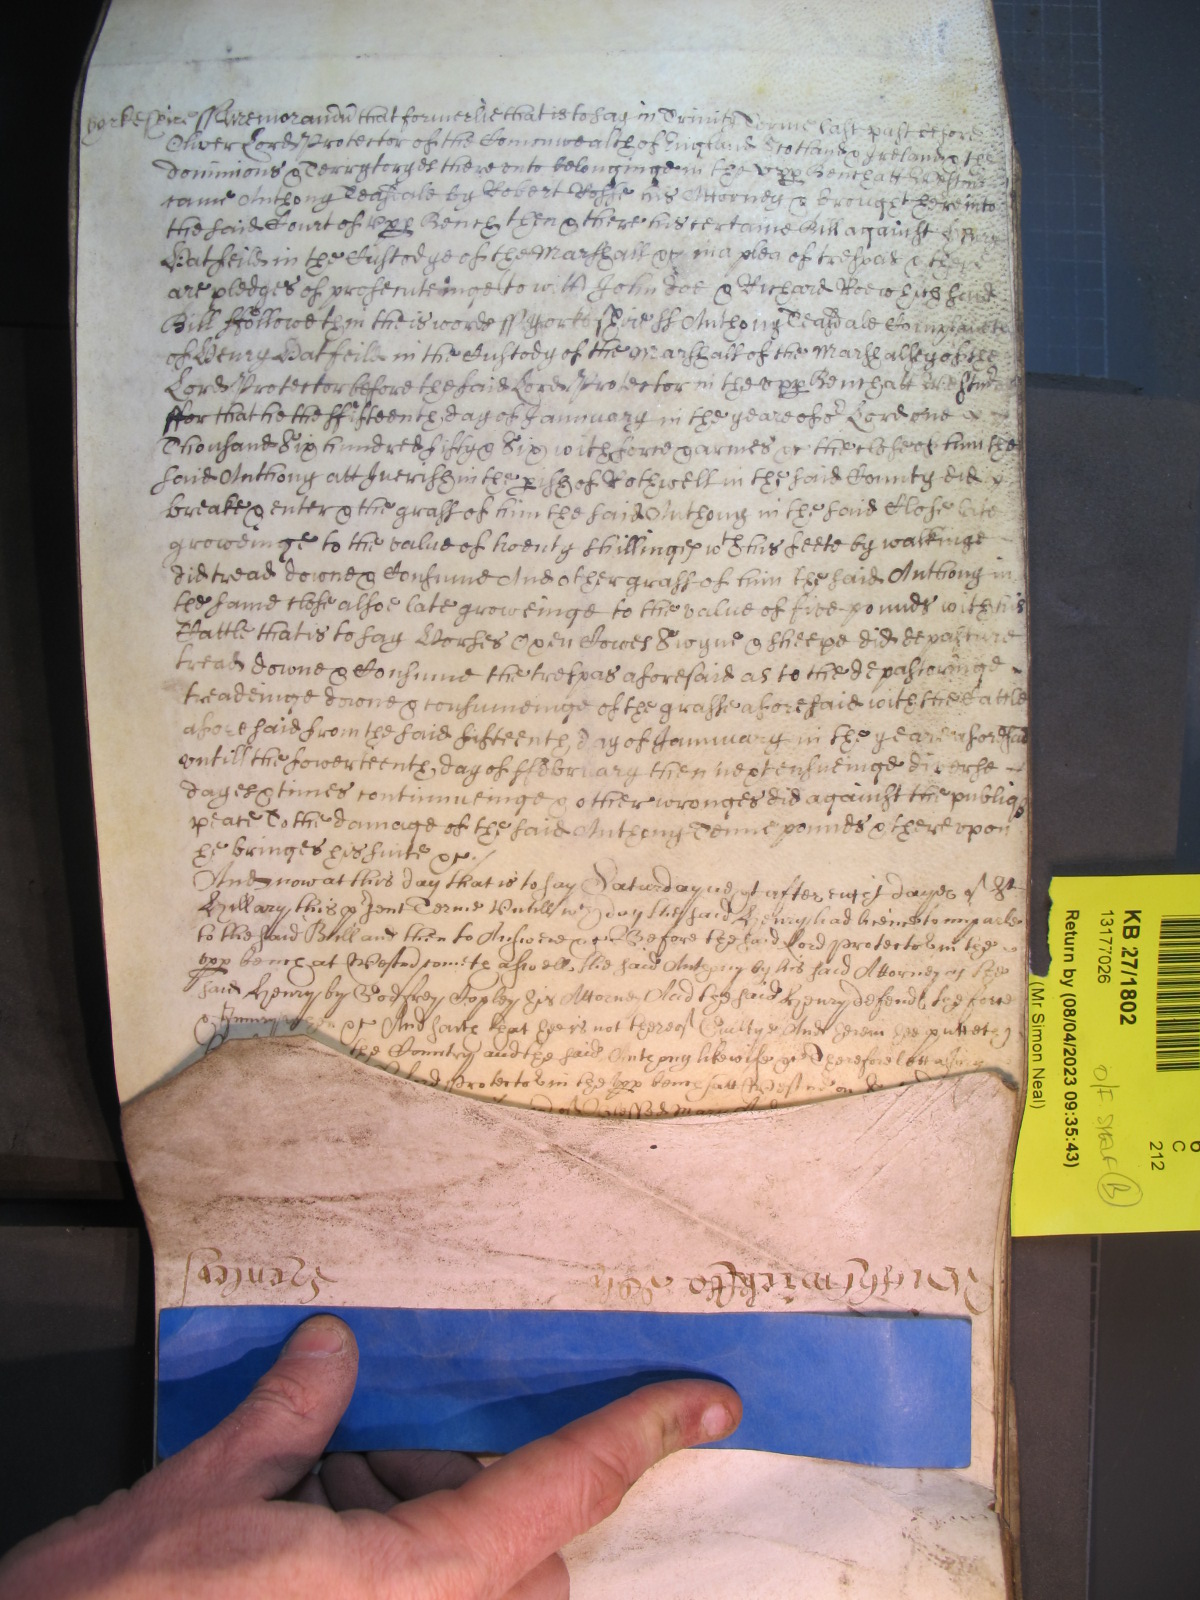 Yorkeshire ss Memorandu that formerlie that is to say in Trinity Terme last past before
Oliver Lord Protector of the Commonwealth of England Scotland & Ireland & the
dominions & Terrytoryes thereunto belonginge in the upp Bench att Westmr
came Anthony Teasdale by Robert Rosse his Attorney & brought here into
the said Court of upp Bench then & there his certaine Bill against Henry
Hatfeild in the Custodye of the Marshall &c in a plea of trespas & there
are pledges of prosecuteinge to witt John doe & Richard Roe which said
Bill ffolloweth in theis words ss Yorkeshire ss Anthony Teasdale Complaineth
of Henry Hatfeild in the Custody of the Marshall of the Marshallsey of the
Lord Protector before the said Lord Protector in the upp Bench att Westmr
ffor that he the ffifteenth day of Januuary in the yeare of or Lord one
Thousand Six hundred fifty & Six with force & armes &c the close of him the
said Anthony att in the pish of Rothwell in the said County did
breake & enter & the grass of him the said Anthony in the said Close late
groweinge to the value of twenty shillinges wth his feete by walkinge
did tread downe & Consume And other grass of him the said Anthony in
the same close alsoe late groweinge to the value of five pounds with his
Cattle that is to say Horses Oxen Cowes Swyne & sheepe did depasture
tread downe & Consume the trespas aforesaid as to the depasturinge
treadeinge downe & consumeinge of the grasse aforesaid with the Cattle
aforesaid from the said fifteenth day of Januuary in the yeare aforesaid
untill the fowerteenth day of ffebruary then next ensueinge diverse
dayes & times continueinge & other wronges did against the publiq
peace To the damage of the said Anthony Tenne pounds & thereupon
he bringes his suite &c
And now at this day that is to say Saturday next after eight dayes of St
Hillary this psent Terme Untill wch day the said Henry had licence to imparle
to the said Bill and then to Answere &c Before the said Lord Protector in the
upp bench at Westmr cometh aswell the said Anthony by his said Attorney as the
said Henry by Godfrey Copley his Attorney And the said Henry defends the force
& Iniury when &c And saith that hee is not thereof Guilty & And herein hee putteth
the Country and the said Anthony likewise &c Therefore lett a Jury
Lord Protector in the upp bench att Westmr on
of Blessed Mary And
Henley
KB 27/1802
13177026
Return by (08/04/2023 09:35:43)
(Mr Simon Neal)
O/F SHELF B
6
C
212